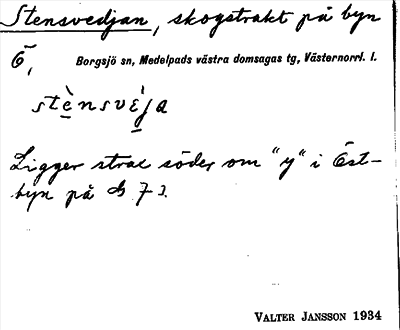 Stensvedjan, skogstrakt på byn
Ö,
Borgsjö sn, Medelpads västra domsagas tg, Västernorrl. l.
stènsvèja
Ligger strax söder om "y" i Öst-
byn på
VALTER JANSSON 1934